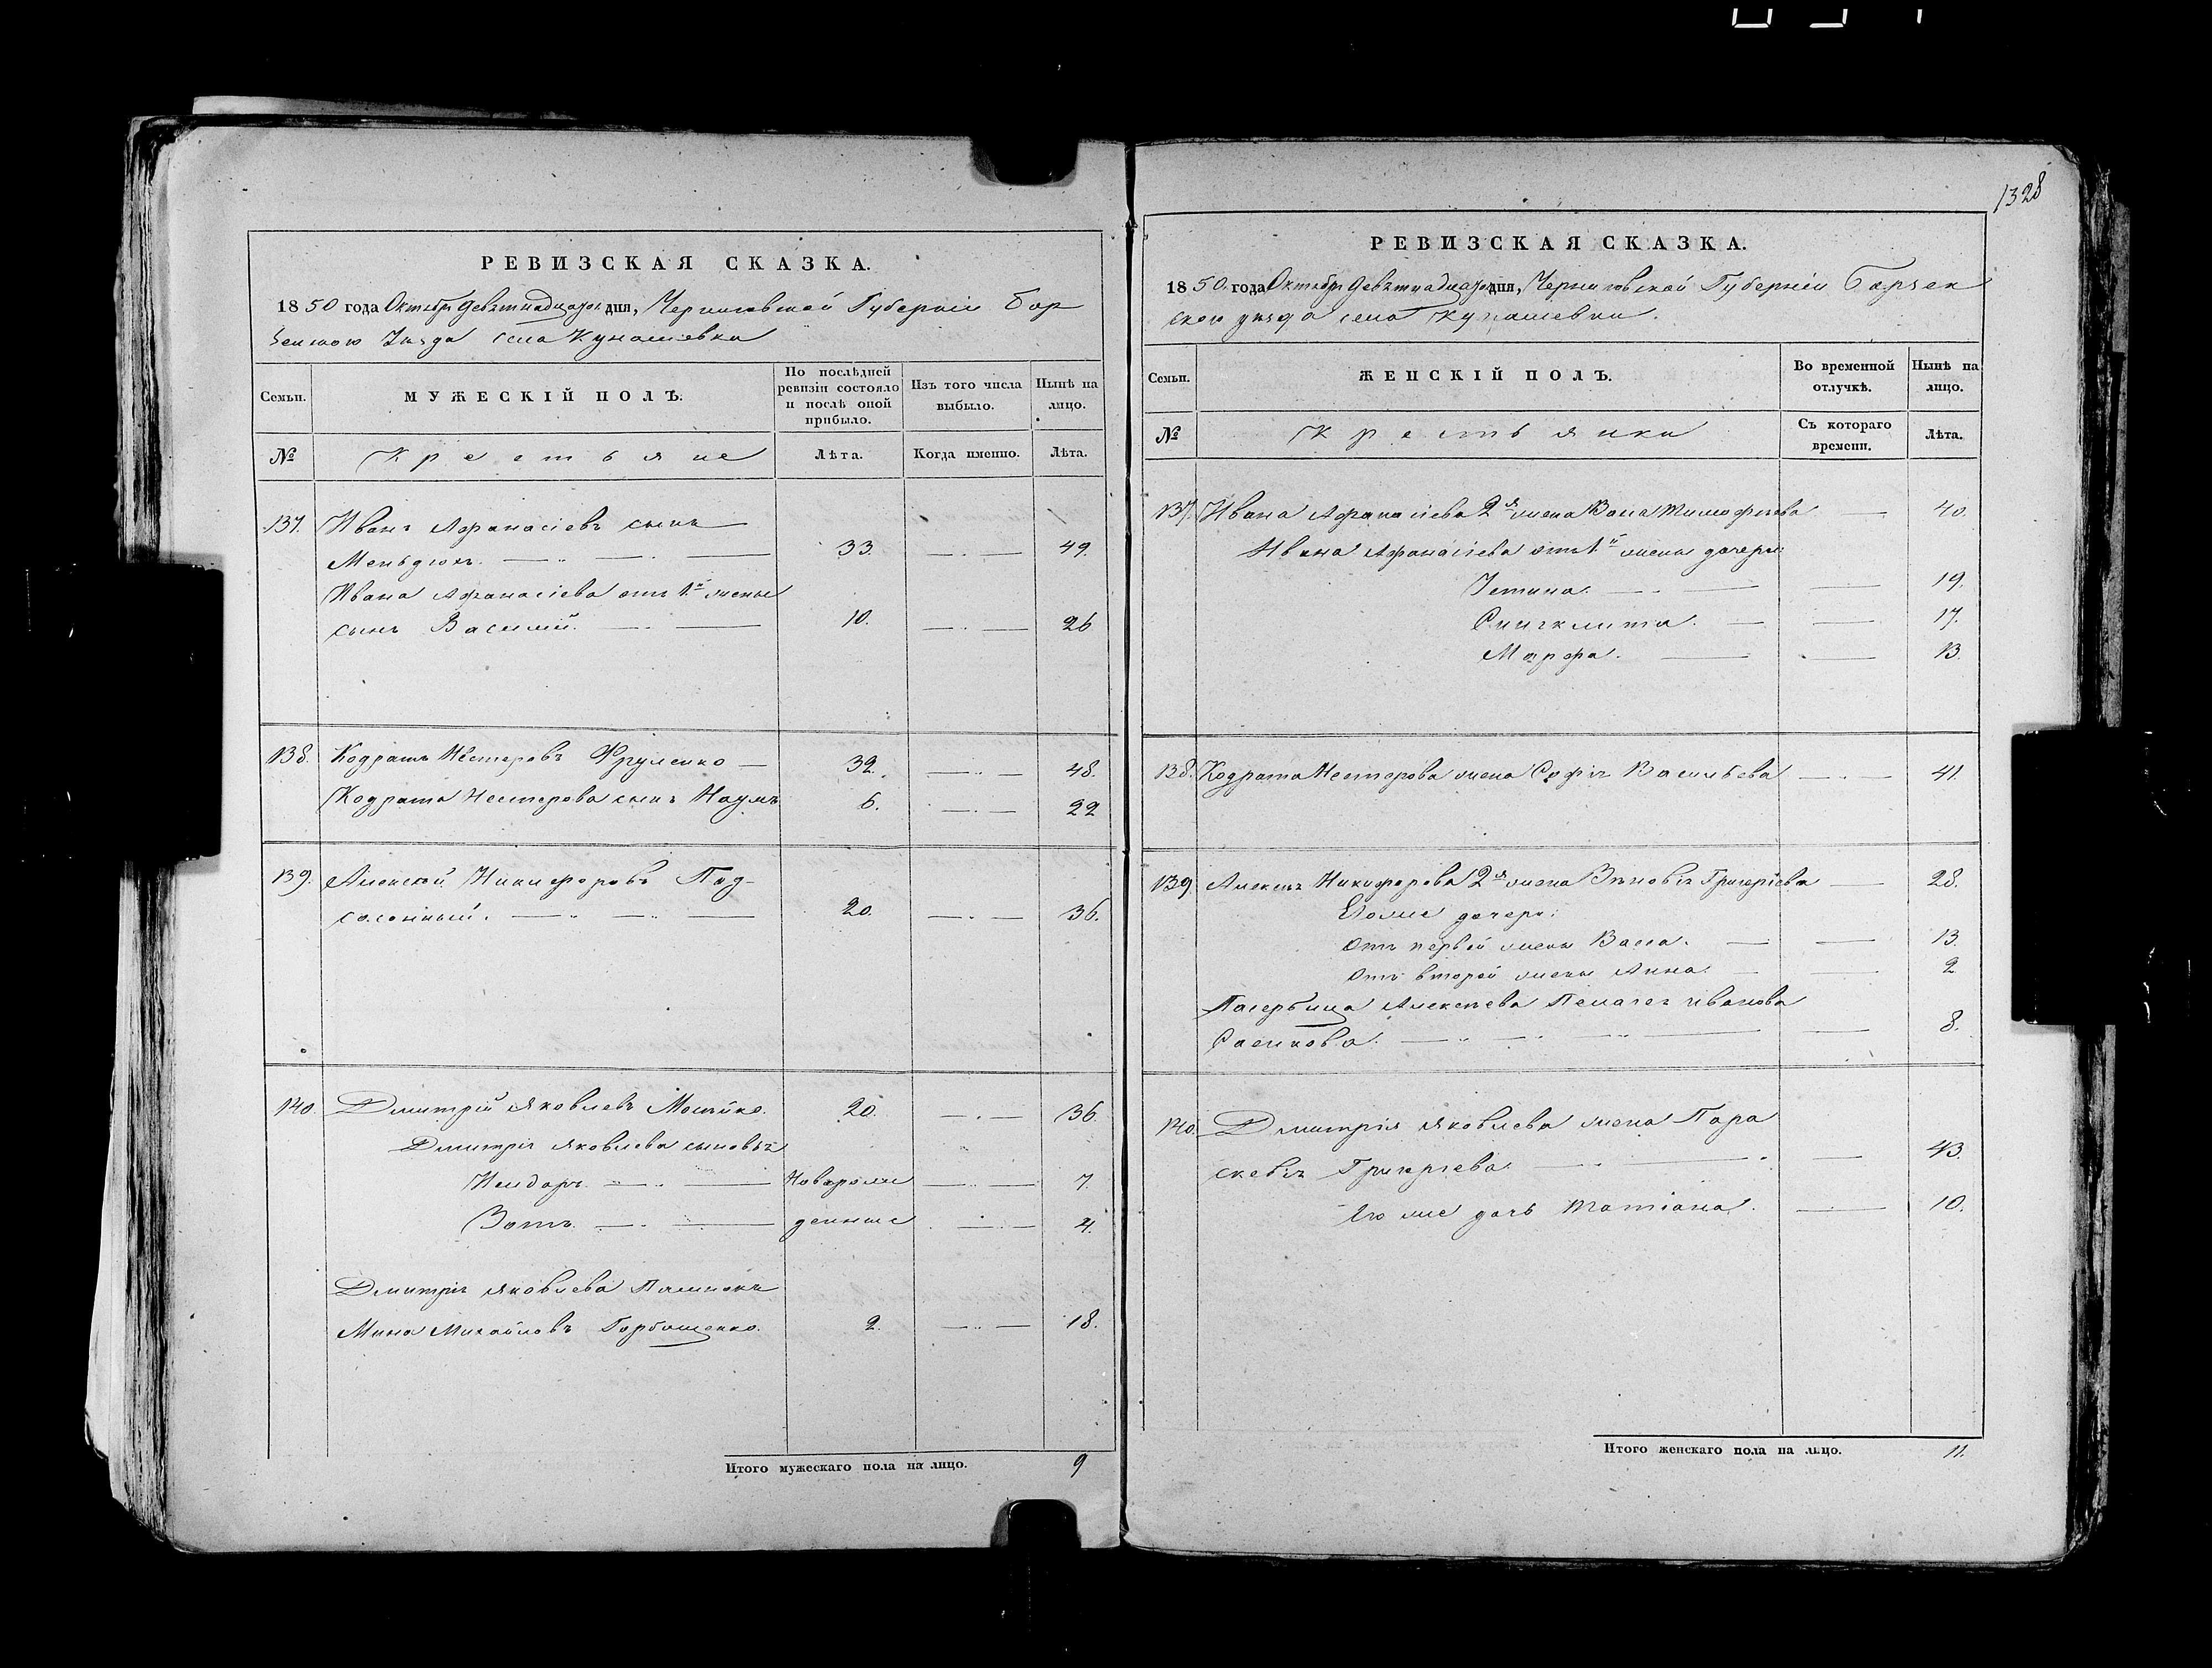 1328
РЕВИЗСКАЯ СКАЗКА.
1850 года Октября девятнадцатого дня, Черниговской Губернии Бор
зенского Уезда села Кунашевки
Семьи. МУЖЕСКІЙ ПОЛЪ. По послѣдней ревизіи состояло и послѣ оной прибыло. Изъ того числа выбыло. Нынѣ на лицо.
№ Крестьяне Лѣта. Когда именно. Лѣта.
137. Иванъ Афанасіевъ сынъ
33. 49.
Ивана Афанасіева отъ 1й жены
сынъ Василій. 10. 26
138. Кодратъ Нестеровъ 32. 48.
Кодрата Нестерова сынъ Наумъ 6. 22
139. Алексей Никифоровъ Под-
солонный. 20. 36.
140. Дмитрій Яковлевъ 20. 36.
Дмитрія Яковлева сыновья
Исидоръ. Новорож 7.
Зотъ. денные 4.
Дмитрія Яковлева
Мина Михайловъ Горбащенко. 2. 18.
Итого мужескаго пола на лицо. 9
РЕВИЗСКАЯ СКАЗКА.
1850 года Октября девятнадцатого дня, Черниговской Губерніи Борзен
ского уезда села Кунашевки.
Семьи. ЖЕНСКІЙ ПОЛЪ. Во временной отлучкѣ. Нынѣ на лицо.
№ Крестьянки Съ котораго времени. Лѣта.
137. Ивана Афанасіева 2я жена Васа Тимофѣева 40.
Ивана Афанасіева отъ 1й жены дочери:
Устина. 19.
Синклита. 17.
Марфа. 13.
138. Кодрата Нестерова жена Софія Васильева 41.
139. Алексѣя Никифорова 2я жена Зѣновія Григоріева 28.
Его же дочери:
Отъ первой жены Васса. 13.
Отъ второй жены Анна. 2
Падчерица Алексѣева Пелагея Иванова
8.
140. Дмитрія Яковлева жена Пара
скевія Григорьева 43.
Его же дочь Татіана. 10.
Итого женскаго пола на лицо. 11.